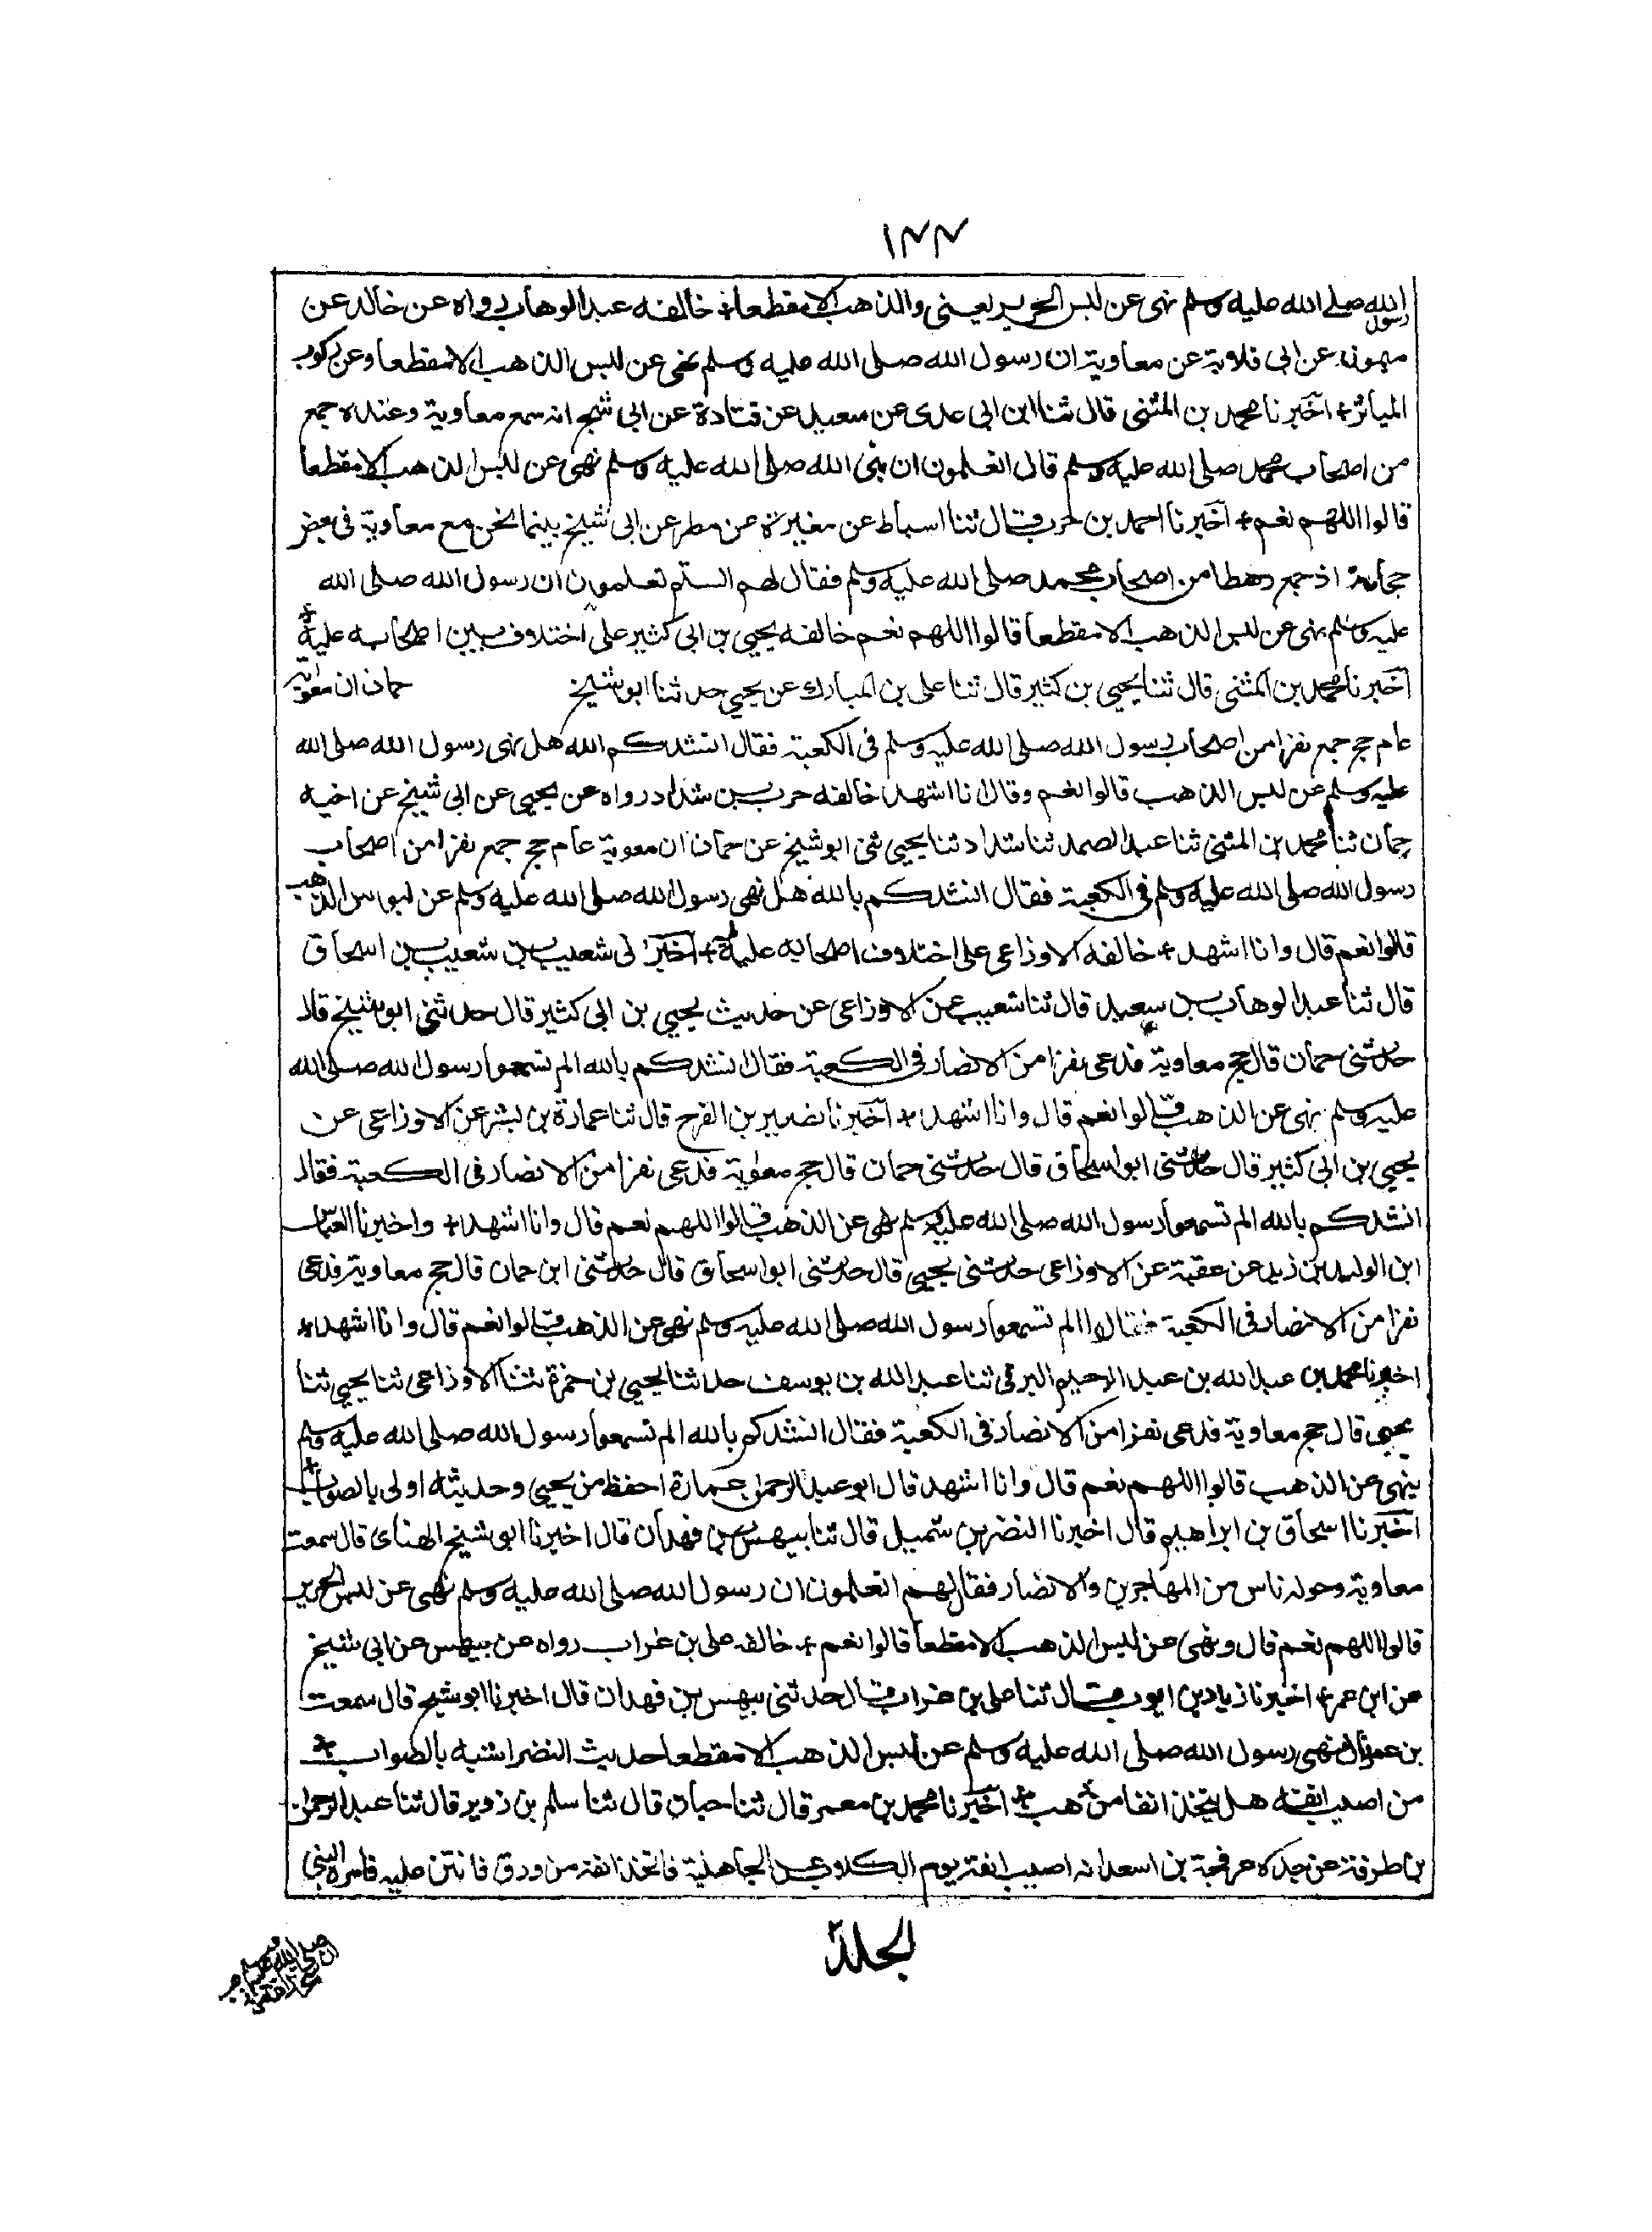 ١٢٢
رسول الله صلى الله عليه وسلم نهى عن لبس الحرير يعنى والذهب الا مقطعا + خالفه عبد الوهاب رواه عن خالد عن
ميمون عن ابى قلابة عن معاوية ان رسول الله صلى الله عليه وسلم نهى عن لبس الذهب الا مقطعا وعن ركوب
المياثر + اخبرنا محمد بن المثنى قال ثنا ابن ابى عدى عن سعيد عن قتادة عن ابى شيخ انه سمع معاوية وعنده جمع
من اصحاب محمد صلى الله عليه وسلم قال اتعلمون ان نبى الله صلى الله عليه وسلم نهى عن لبس الذهب الا مقطعا
قالوا اللهم نعم + اخبرنا احمد بن حرب قال ثنا اسباط عن مغيرة عن مطر عن ابى شيخ بينما نحن مع معاوية فى بعض
حجاته اذ جمع رهطا من اصحاب محمد صلى الله عليه وسلم فقال لهم الستم تعلمون ان رسول الله صلى الله
عليه وسلم نهى عن لبس الذهب الا مقطعا قالوا اللهم نعم خالفه يحيى بن ابى كثير على اختلاف بين اصحابه عليه +
اخبرنا محمد بن المثنى قال ثنا يحيى بن كثير قال ثنا على بن المبارك عن يحيى حدثنا ابو شيخ حمان ان معوية
عام حج جمع نفرا من اصحاب رسول الله صلى الله عليه وسلم فى الكعبة فقال انشدكم الله هل نهى رسول الله صلى الله
عليه وسلم عن لبس الذهب قالوا نعم وقال انا اشهد خالفه حرب بن شداد رواه عن يحيى عن ابى شيخ عن اخيه
حمان ثنا محمد بن المثنى ثنا عبد الصمد ثنا شداد ثنا يحيى ثنى ابو شيخ عن حمان ان معوية عام حج جمع نفرا من اصحاب
رسول الله صلى الله عليه وسلم فى الكعبة فقال انشدكم بالله هل نهى رسول الله صلى الله عليه وسلم عن لبوس الذهب
قالوا نعم قال وانا اشهد + خالفه الاوزاعى على اختلاف اصحابه عليه + اخبرنى شعيب بن شعيب بن اسحاق
قال ثنا عبد الوهاب بن سعيد قال ثنا شعيب عن الاوزاعى عن حديث يحيى بن ابى كثير قال حدثنى ابو شيخ قال
حدثنى حمان قال حج معاوية فدعى نفرا من الانصار فى الكعبة فقال انشدكم بالله الم تسمعوا رسول الله صلى الله
عليه وسلم نهى عن الذهب قالوا نعم قال وانا اشهد + اخبرنا نصير بن الفرج قال ثنا عمارة بن بشر عن الاوزاعى عن
يحيى بن ابى كثير قال حدثنى ابو اسحاق قال حدثنى حمان قال حج معوية فدعى نفرا من الانصار فى الكعبة فقال
انشدكم بالله الم تسمعوا رسول الله صلى الله عليه وسلم نهى عن الذهب قالوا اللهم نعم قال وانا اشهد + واخبرنا العباس
ابن الوليد بن زيد عن عقبة عن الاوزاعى حدثنى يحيى قال حدثنى ابو اسحاق قال حدثنى ابن حمان قال حج معاوية فدعى
نفرا من الانصار فى الكعبة فقال الم تسمعوا رسول الله صلى الله عليه وسلم نهى عن الذهب قالوا نعم قال وانا اشهد +
اخبرنا محمد بن عبد الله بن عبد الرحيم البرقى ثنا عبد الله بن يوسف حدثنا يحيى بن حمزة ثنا الاوزاعى ثنا يحيى ثنا
يحيى قال حج معاوية فدعى نفرا من الانصار فى الكعبة فقال انشدكم بالله الم تسمعوا رسول الله صلى الله عليه وسلم
ينهى عن الذهب قالوا اللهم نعم قال وانا اشهد قال ابو عبد الرحمن عمارة احفظ من يحيى وحديثه اولى بالصواب +
اخبرنا اسحاق بن ابراهيم قال اخبرنا النضر بن شميل قال ثنا بيهس بن فهدان قال اخبرنا ابو شيخ الهنائ قال سمعت
معاوية وحوله ناس من المهاجرين والانصار فقال لهم اتعلمون ان رسول الله صلى الله عليه وسلم نهى عن لبس الحرير
قالوا اللهم نعم قال ونهى عن لبس الذهب الا مقطعا قالوا نعم + خالفه على بن غراب رواه عن بيهس عن ابى شيخ
عن ابن عمر + اخبرنا زياد بن ايوب قال ثنا على بن غراب قال حدثنى بيهس بن فهدان قال اخبرنا ابو شيخ قال سمعت
بن عمر قال نهى رسول الله صلى الله عليه وسلم عن لبس الذهب الا مقطعا حديث النضر اشبه بالصواب +
من اصيب انفه هل يتخذ انفا من ذهب + اخبرنا محمد بن معمر قال ثنا حبان قال ثنا سلم بن زرير قال ثنا عبد الرحمن
بن طرفة عن جده عرفجة بن اسعد انه اصيب انفه يوم الكلاب فى الجاهلية فاتخذ انفه من ورق فانتن عليه فامره النبى
الجلد
صلى الله